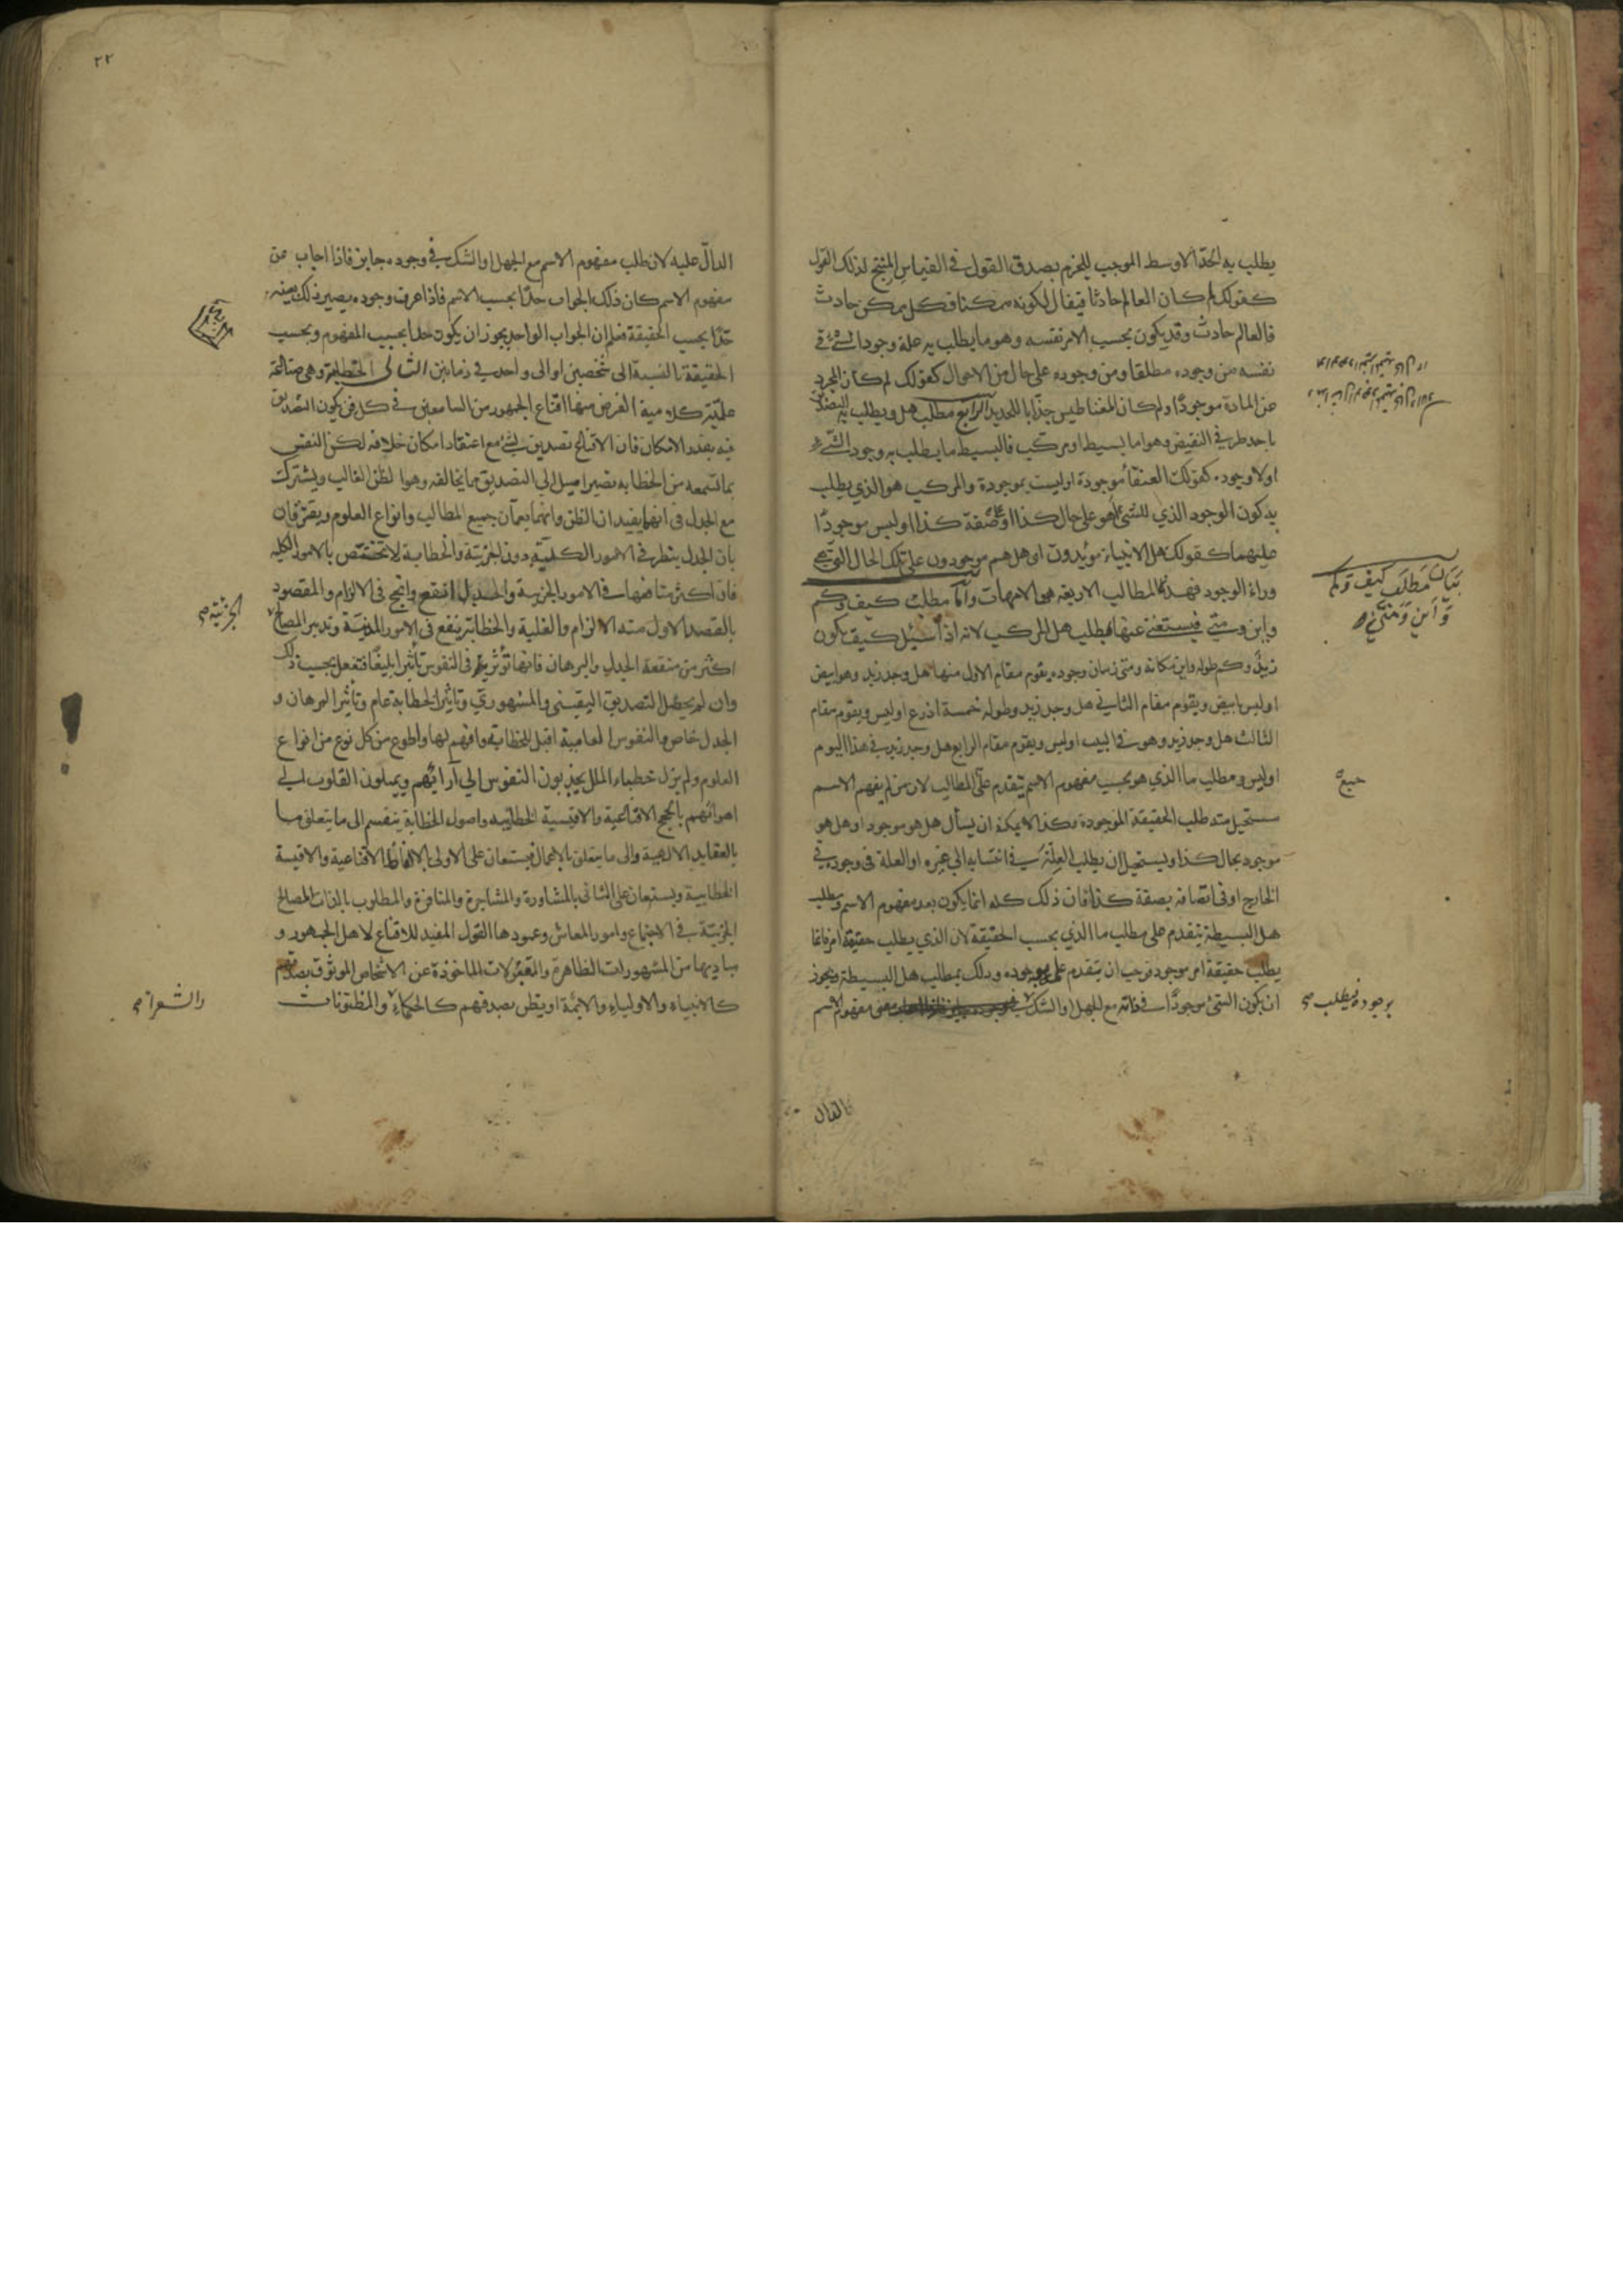 يطلب به الحد الاوسط الموجب للجزم بصدق القول في القياس المنتج لذلك القول
كقولك لم كان العالم حادثا فيقال لكونه ممكنا وكل ممكن حادث
فالعالم حادث وقد يكون بحسب الامر نفسه وهو ما يطلب به علة وجود الشيء في
نفسه من وجوده مطلقا ومن وجوده على حال من الاحوال كقولك لم كان المجرد
عن المادة موجودًا ولم كان المغناطيس جذابا للحديد الرابع مطلب هل ويطلب به التصديق
باحد طرفي النقيض وهو اما بسيط او مركب فالبسيط ما يطلب به وجود الشيء
اولا وجوده كقولك العنقاء موجودة او ليست بموجودة والمركب هو الذي يطلب
به كون الموجود الذي للشيء هو على حال كذا او على صفة كذا او ليس موجودًا
عليهما كقولك هل الانبياء مؤيدون او هل هم موجودون على تلك الحال التي هي
وراء الوجود فهذه المطالب الاربعة هي الامهات واما مطلب كيف وكم
واين ومتى فيستغنى عنها بمطلب هل المركب لانه اذا سئل كيف كون
زيد وكم طوله واين مكانه ومتى زمان وجوده يقوم مقام الاول منها هل وجد زيد وهو ابيض
او ليس بابيض ويقوم مقام الثاني هل وجد زيد وطوله خمسة اذرع او ليس ويقوم مقام
الثالث هل وجد زيد وهو في البيت او ليس ويقوم مقام الرابع هل وجد زيد في هذا اليوم
او ليس ومطلب ما الذي هو بحسب مفهوم الاسم يتقدم على المطالب لان من لم يفهم الاسم
يستحيل منه طلب الحقيقة الموجودة وكذا لا يمكنه ان يسأل هل هو موجود او هل هو
موجود بحال كذا ويستحيل ان يطلب العلة في انتسابه الى غيره او العلة في وجوده في
الخارج او في اتصافه بصفة كذا فان ذلك كله انما يكون بعد مفهوم الاسم ومطلب
هل البسيطة يتقدم على مطلب ما الذي بحسب الحقيقة لان الذي يطلب حقيقة امر فانما
يطلب حقيقة امر موجود فوجب ان يتقدم علمه بوجوده وذلك بمطلب هل البسيطة ويجوز
ان يكون الشيء موجودًا في ذاته مع الجهل والشك مفهوم الاسم
بيان مطلب كيف وكم
واين ومتى
جميع
بوجوده فيطلب صح
الدال
٢٢
الدال عليه لان طلب مفهوم الاسم مع الجهل او الشك في وجوده جايز فاذا اجاب عن
مفهوم الاسم كان ذلك الجواب حدًا بحسب الاسم فاذا عرف وجوده يصير ذلك بعينه
حدًا بحسب الحقيقة فعلم ان الجواب الواحد يجوز ان يكون حدا بحسب المفهوم وبحسب
الحقيقة بالنسبة الى شخصين او الى واحد في زمانين الثاني الخطابة وهي صناعة
علمية كلامية الغرض منها اقناع الجمهور من السامعين في كل فن يكون التصديق
فيه بقدر الامكان فان الاقناع تصديق بشيء مع اعتقاد امكان خلافه لكن النفس
بما تسمعه من الخطابه تصير اميل الى التصديق مما يخالفه وهو الظن الغالب ويشترك
مع الجدل في انهما يفيدان الظن وانهما يعمان جميع المطالب وانواع العلوم ويفترقان
بان الجدل ينظر في الامور الكلية دون الجزئية والخطابة لا تختص بالامور الكليه
فان اكثر منافعها في الامور الجزئية والجدل انفع وانجح في الالزام والمقصود
بالقصد الاول منه الالزام والغلبة والخطابة ينفع في الامور المدنية وتدبير المصالح
اكثر من منفعة الجدل والبرهان فانها تؤثر في النفوس تأثيرا بليغًا فتفعل بحسب ذلك
وان لم يحصل التصديق اليقيني والمشهوري وتأثير الخطابة عام وتأثير البرهان و
الجدل خاص والنفوس العامية اقبل للخطابة وافهم لها واطوع من كل نوع من انواع
العلوم ولم يزل خطباء الملل يجذبون النفوس الى آرائهم ويميلون القلوب الى
اهوائهم بالحجج الاقناعية والاقيسة الخطابيه واصول الخطابة ينقسم الى ما يتعلق منها
بالعقايد الالهية والى ما يتعلق بالاعمال يستعان على الاولى بالالفاظ الاقناعية والاقيسة
الخطابية ويستعان على الثاني بالمشاورة والمشاجرة والمنافرة والمطلوب بالذات المصالح
الجزئية في الاجتماع وامور المعاش وعمودها القول المفيد للاقناع لاهل الجمهور و
مباديها من المشهورات الظاهرة والمقبولات الماخوذة عن الاشخاص الموثوق بصدقهم
كالانبياء والاولياء والايمة او يظن بصدقهم كالحكماء والمظنونات
الجزئية صح
والشعراء صح